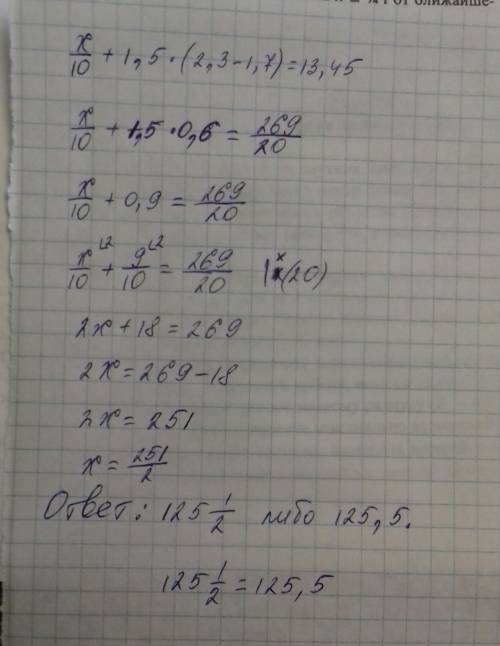 от ближайше-
x/10 + 1,5·(2,3-1,7)=13,45
x/10 + 1,5·0,6 = 269/20
x/10 + 0,9 = 269/20
x/10 ⌊2 + 9/10 ⌊2 = 269/20 |x(20)
2x + 18 = 269
2x = 269 - 18
2x = 251
x = 251/2
Ответ: 125 1/2 либо 125,5.
125 1/2 = 125,5